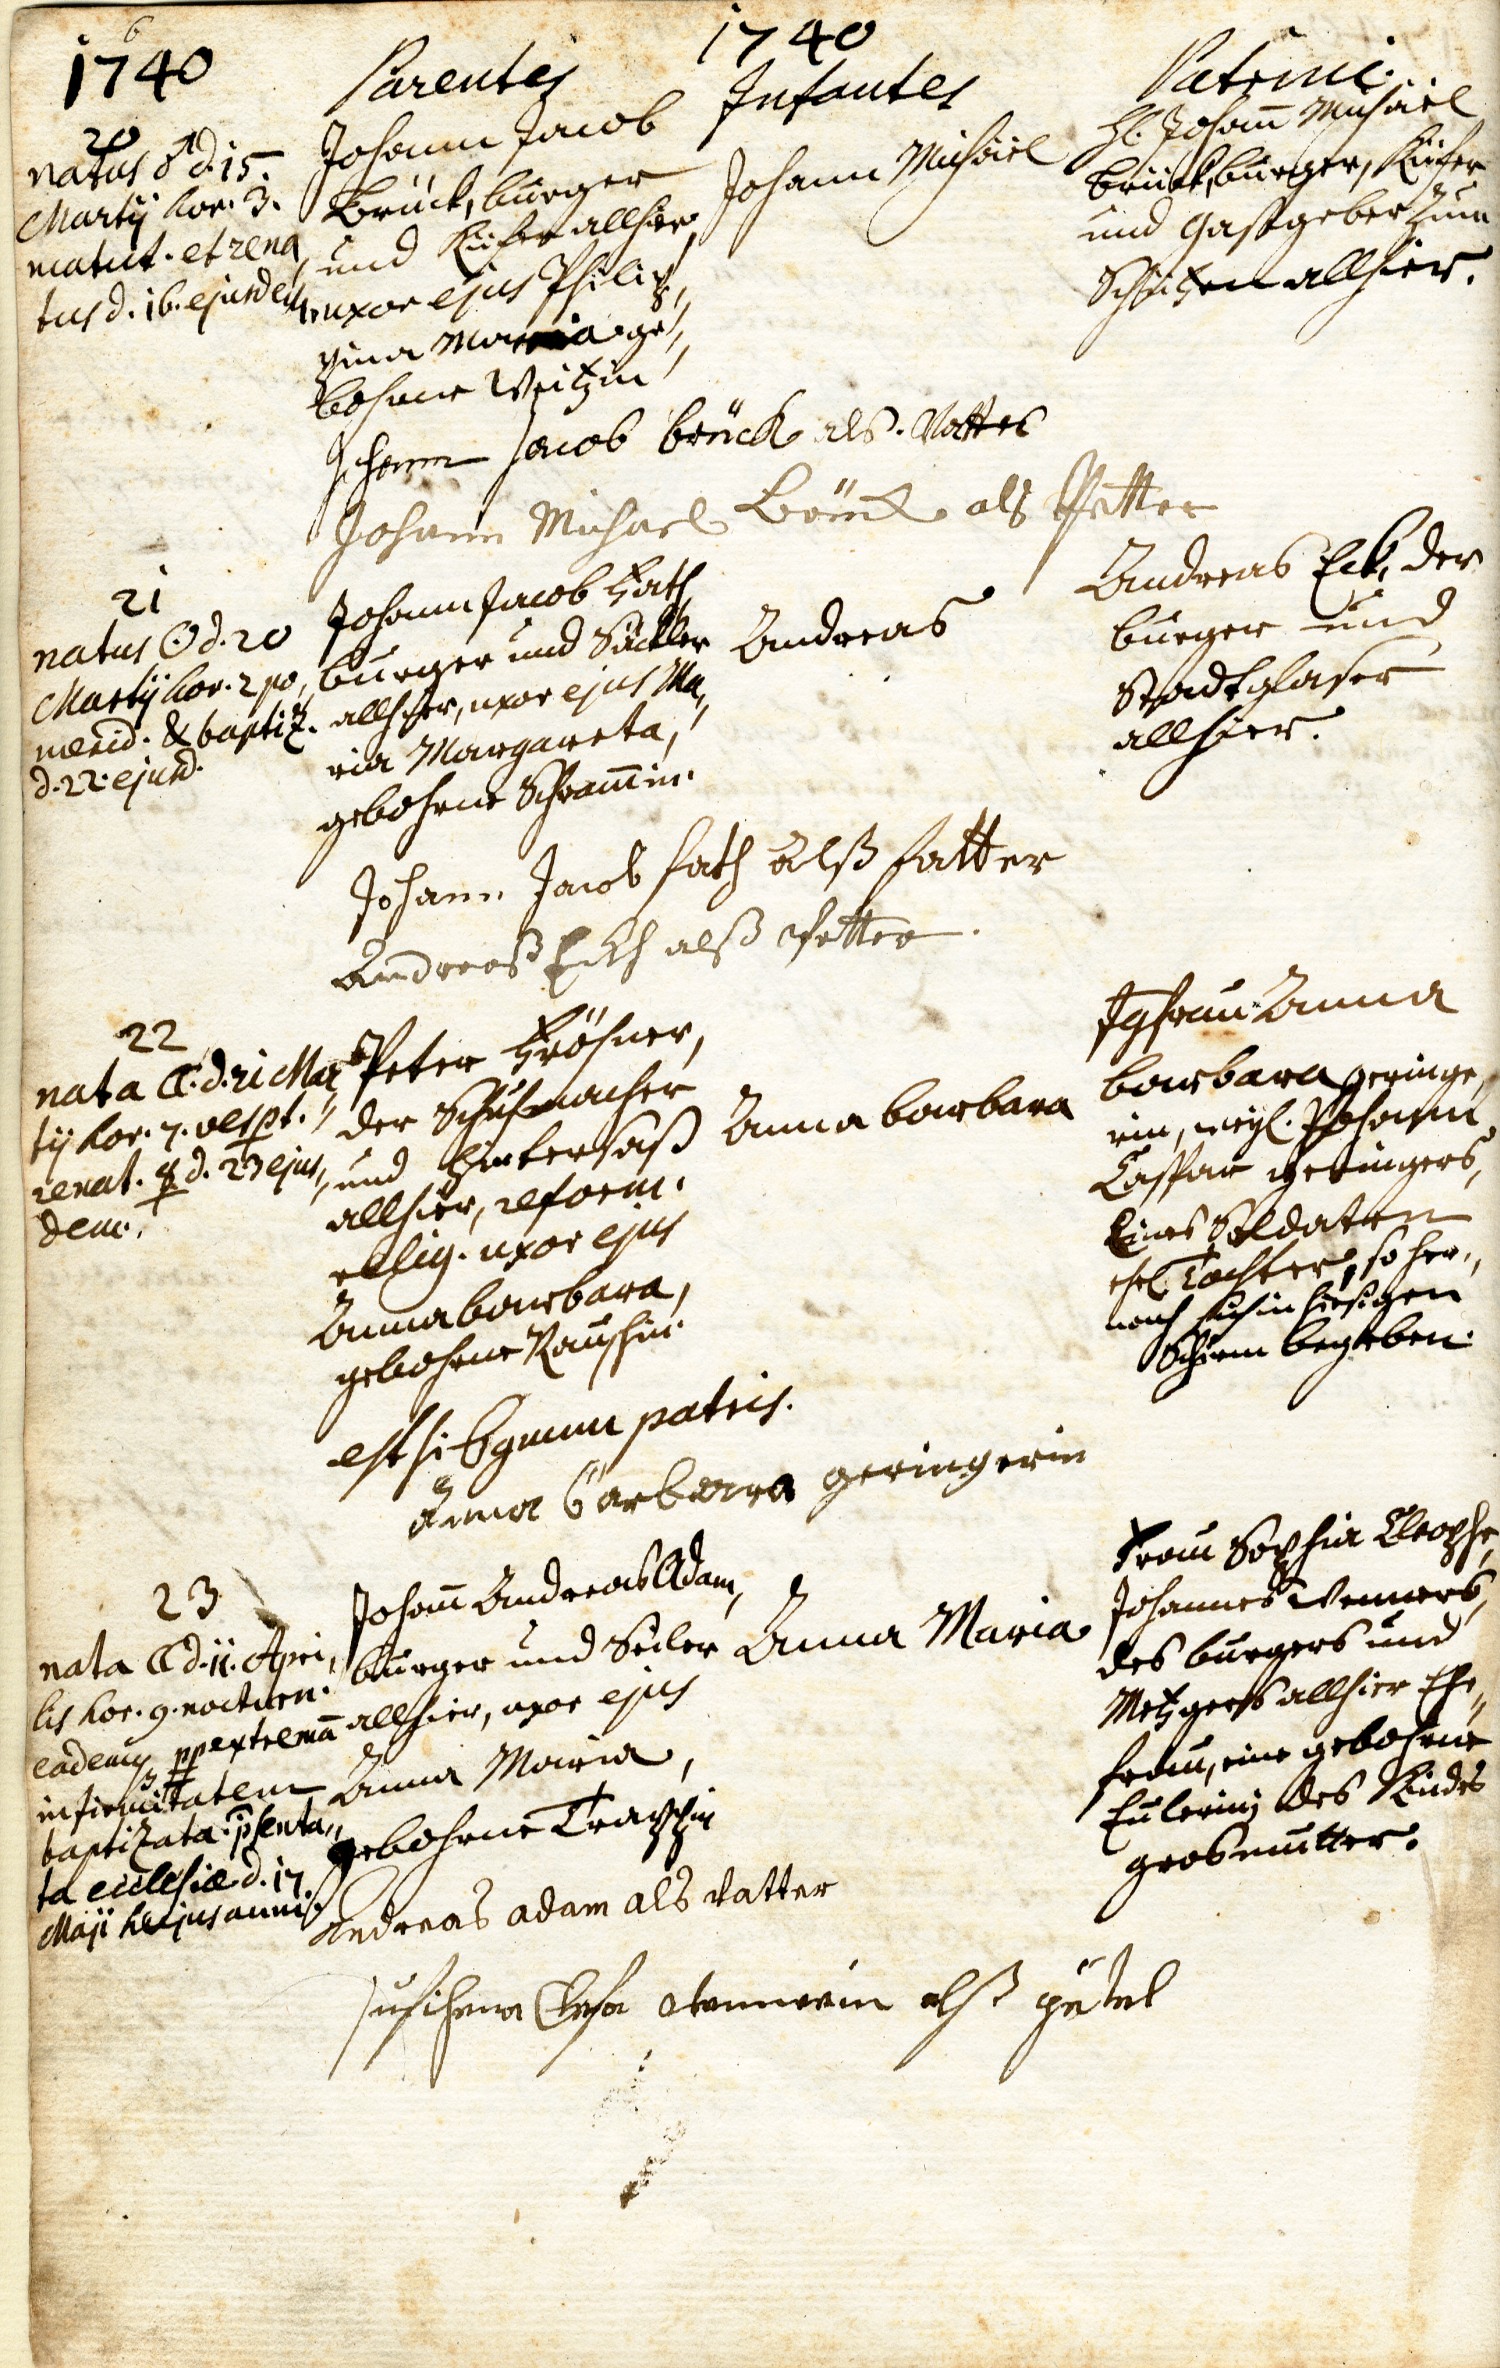 1740
1740
Parentes
Infantes
Patrini.
20
natus ♂ d. 15.
Martij hor. 3.
matut. et rena
tus d. 16. ejusdem
Johann Jacob
Brück, burger
und Küfer allhier,
uxor ejus Philip,,
pina Maria ge,,
bohrne Weitzin
Johann Michaël
H. Johan̄ Michaël
brück, burger, Küfer
und Gastgeber zum
Schützen allhier.
Johann Jacob brück als Vatter
Johann Michael Brück als Pfetter
21
natus ☉ d. 20
Martij hor. 2 po,
merid. & baptiz.
d. 22. ejusd.
Johann Jacob Fath,
burger und Säckler
allhier, uxor ejus Ma,,
ria Margareta,
gebohrne Schram̄in.
Andreas
Andreas Eck, der
burger und
Stadtglaser
allhier.
Johann Jacob fath Alß fatter
Andreaß Eckh alß Pfetter.
22
nata ☾. d. 21 Mar
tij hor. 7. vespt.
renat. d. 23 ejus,,
dem.
Peter Fröhner,
der Schuhmacher
und Hintersaß
allhier, reform.
relig. uxor ejus
Anna barbara,
gebohrne Rauschin.
Anna barbara
Jgfrau Anna
barbara geringe,,
rin, weyl. Johann
Caspar geringers,
Eines Soldaten
ehl. Tochter, so her,,
nach sich in hiesigen
Schirm begeben.
est signum patris.
Anna barbara geringerin
23
nata ☾ d. 11. Apri,,
lis hor. 9. nocturn.
eadem pp extremā
infirmitatem
baptizata. p̄senta,,
ta ecclesiæ d. 17.
Maji hujus anni.
Johan̄ Andreas Adam,
burger und Seiler
allhier, uxor ejus
Anna Maria,
gebohrne
Anna Maria
Frau Sophia Cleophe,
Johannes Wenners,
des burgers und
Metzgers allhier Ehe,,
frau, eine gebohrne
Eulerin, des Kindes
grosmutter.
Andreas adam als vatter
alß götel